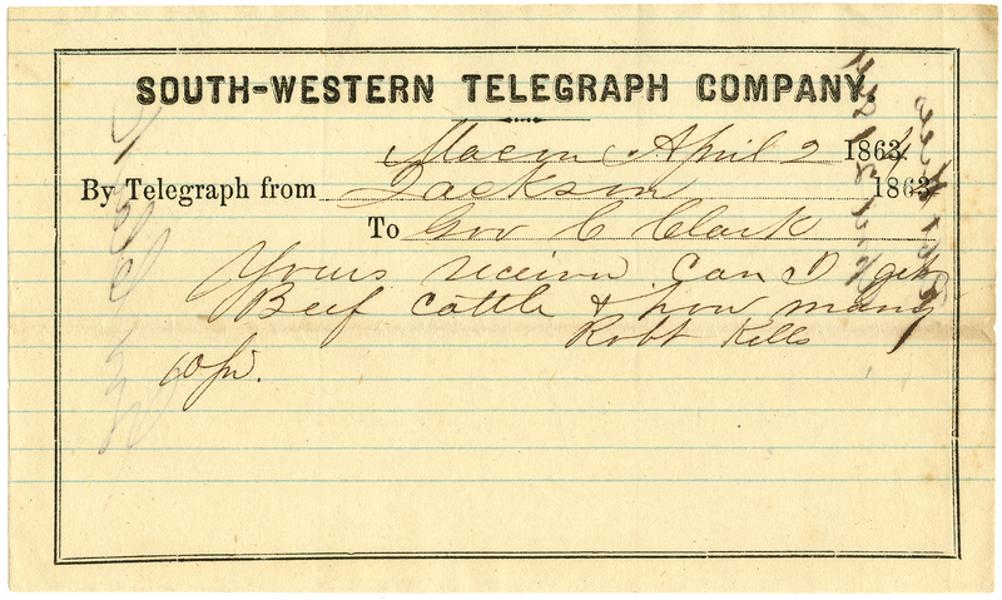 SOUTH-WESTERN TELEGRAPH COMPANY.
Macon April 2 1864
By Telegraph from Jackson 1864
To Gov C Clark
Yours receivd Can I get
Beef cattle & how many
Robt Kells
10 pd.